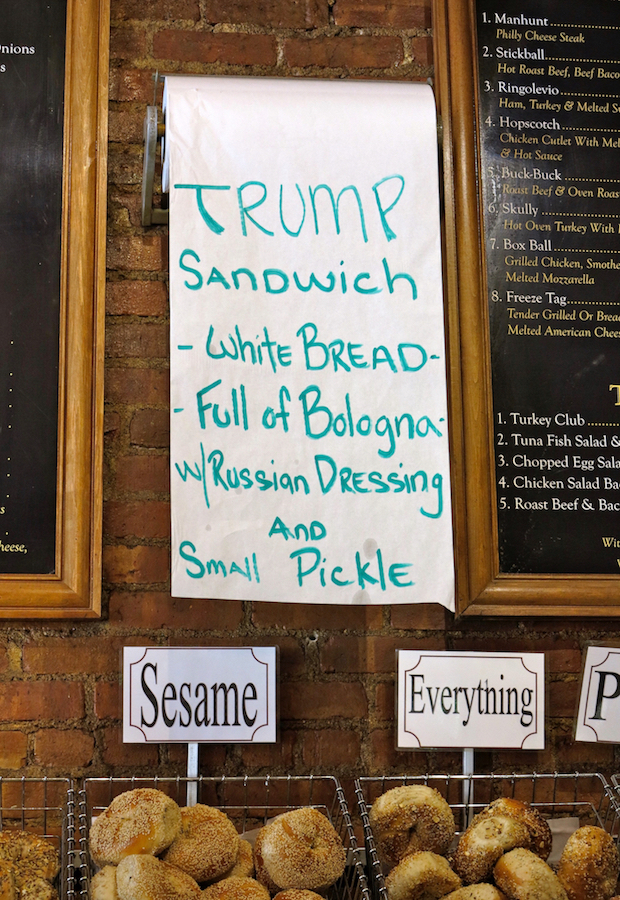 onions
s
heese,
TRUMP
SANDWICH
- White BREAD-
- Full of Bologna-
w/Russian Dressing
AND
Small Pickle
1. Manhunt
Philly Cheese Steak
2. Stickball
Hot Roast Beef, Beef Baco
3. Ringolevio
Ham, Turkey & Melted S
4. Hopscotch
Chicken Cutlet With Mel
& Hot Sauce
5. Buck-Buck
Roast Beef & Oven Roas
6. Skully
Hot Oven Turkey With
7. Box Ball
Grilled Chicken, Smothe
Melted Mozzarella
8. Freeze Tag
Tender Grilled Or Brea
Melted American Chees
T
1. Turkey Club
2. Tuna Fish Salad &
3. Chopped Egg Sala
4. Chicken Salad Bac
5. Roast Beef & Bac
Wit
Sesame
Everything
P